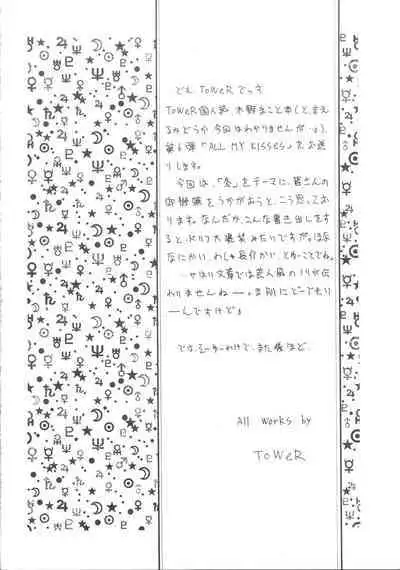 ども ToWeR でっす
ToWeR個人誌、木野まこと本(と、言え
るかどうか今回はわかりませんが…。)
第6弾「ALL MY KISSES」をお送
りします。
今回は、「冬」をテーマに、皆さんの
御機嫌をうかがおうと、こう思ってお
ります。なんだか、こんな書き出しをす
ると、ドリフ大爆笑みたいですが。ほな
なにかい、わしゃ長介かい、とゆーことでね。
ーやはり文章では芸人風のノリが伝
わりませんねー。ま、別にどーでもい
ーんですけど。
では、そーゆーわけで、また後ほど。
All works by
ToWeR